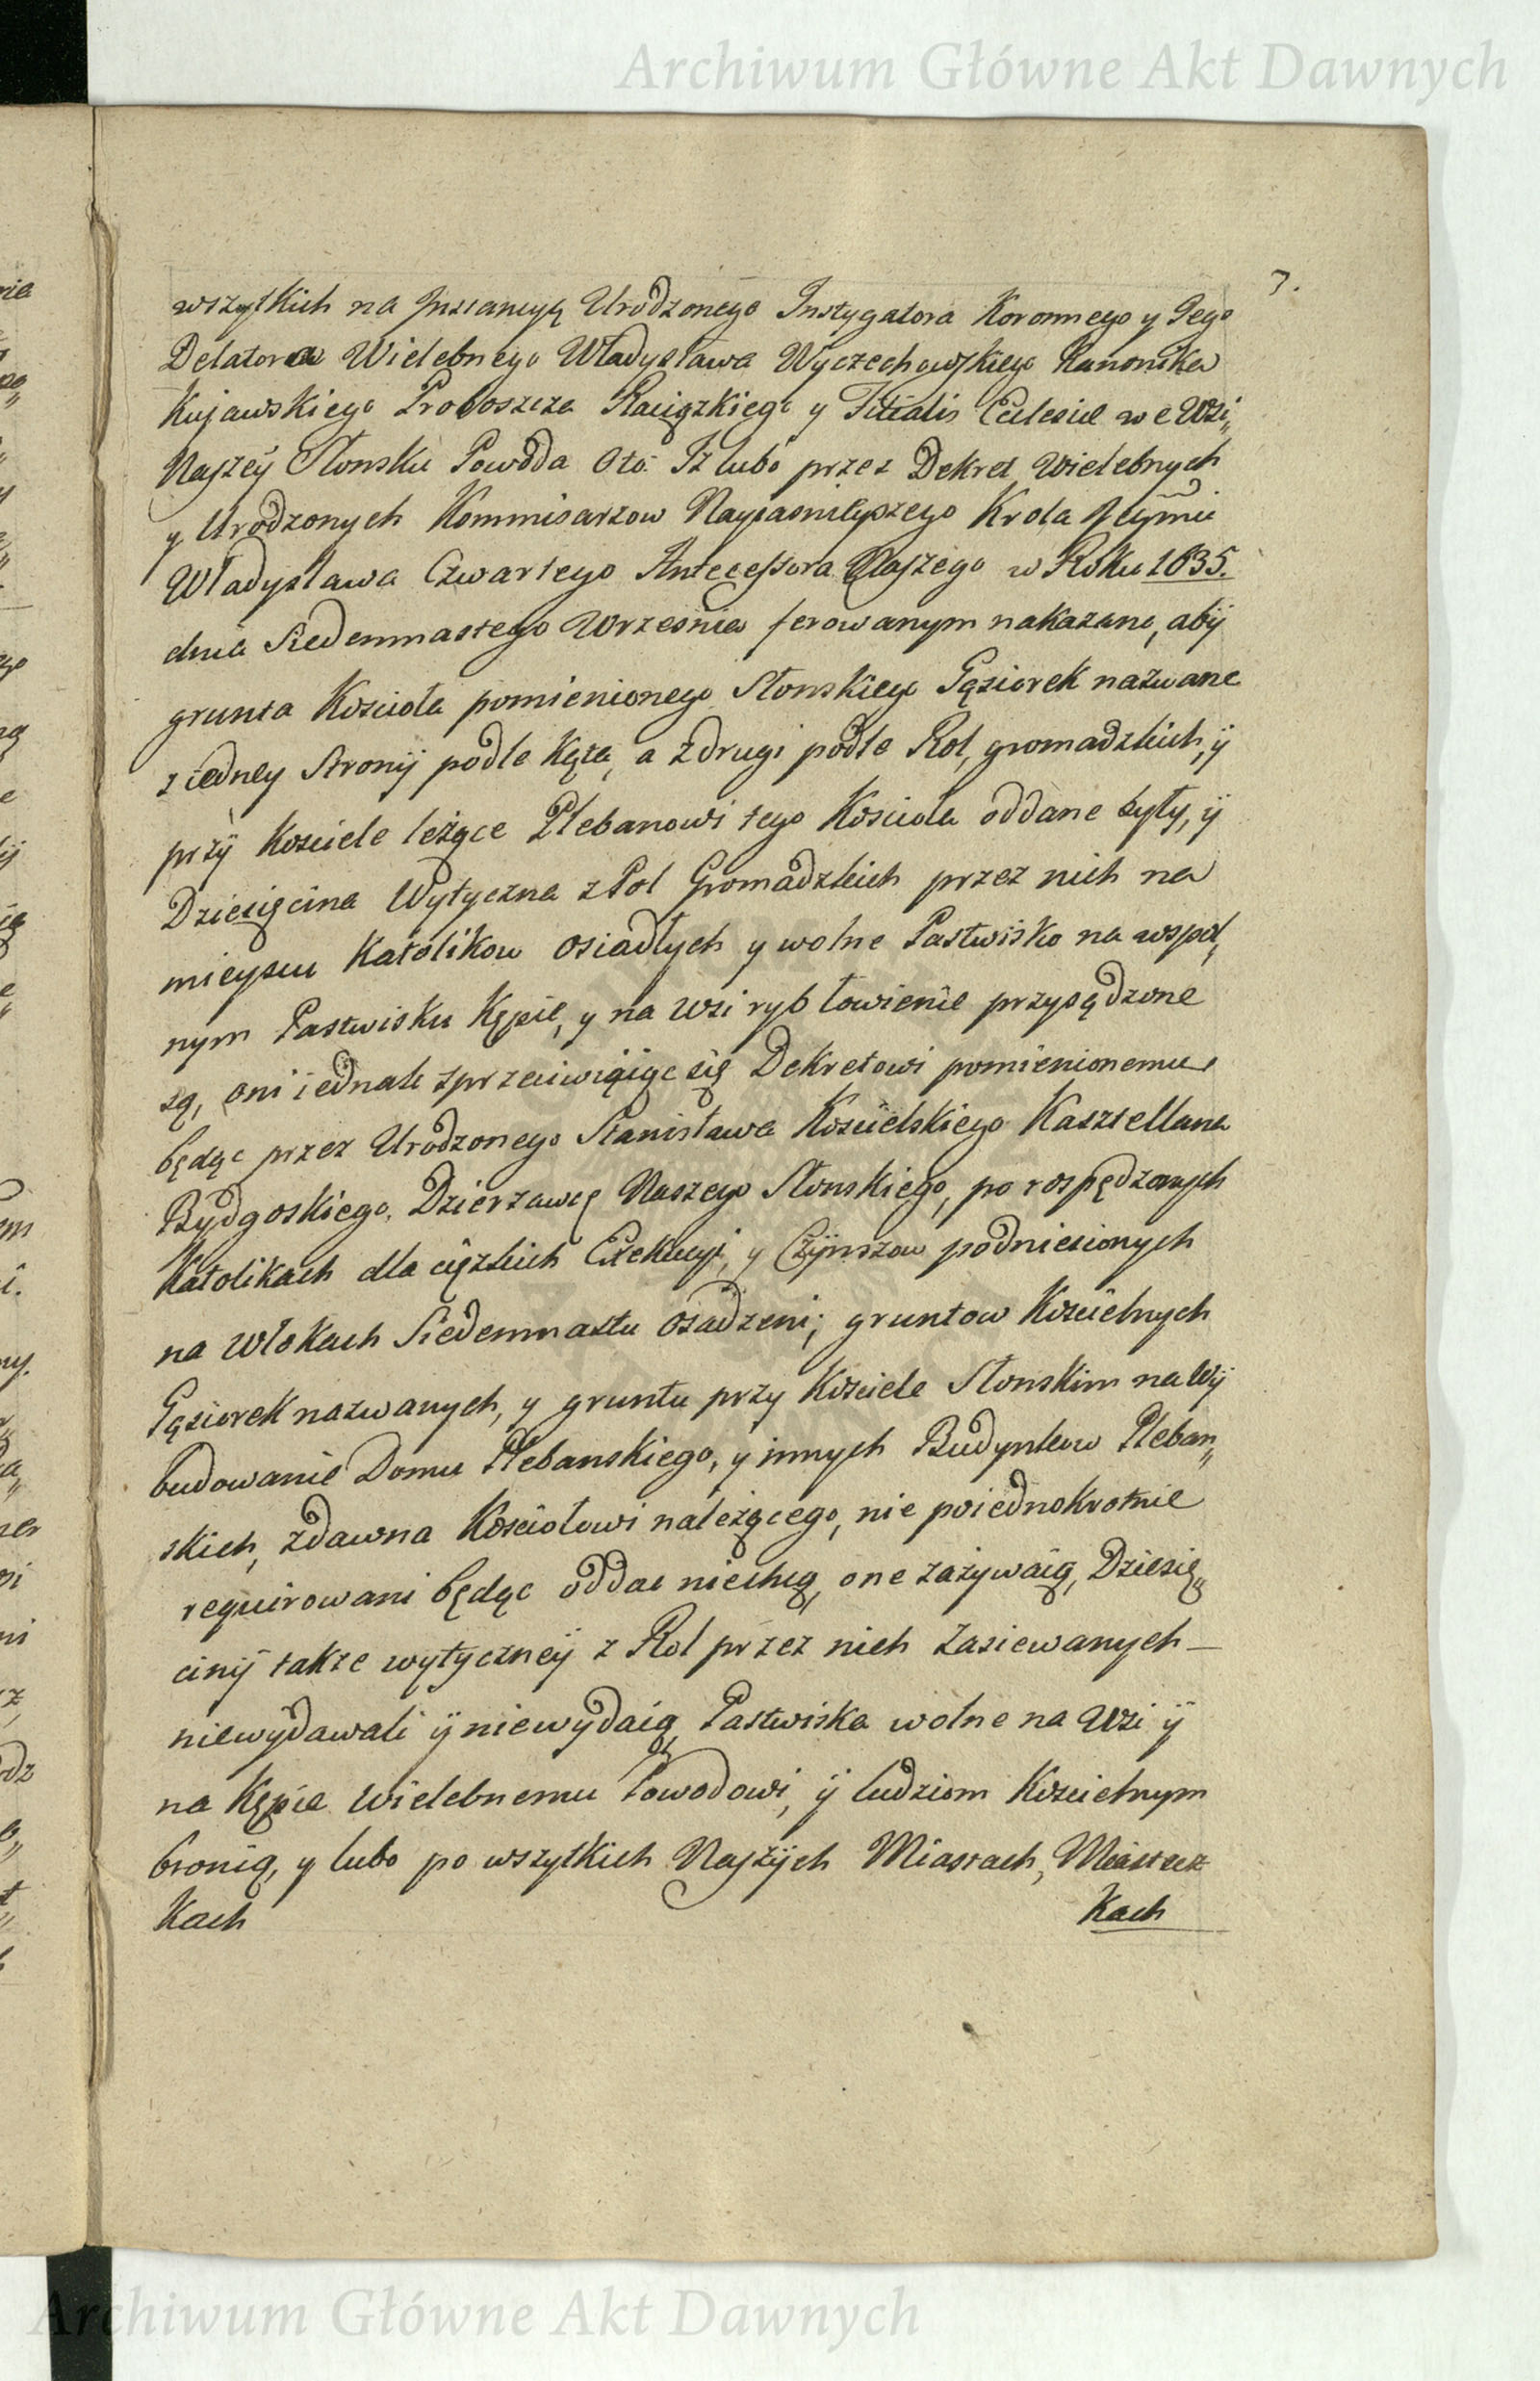 Archiwum Główne Akt Dawnych
7.
wszystkich na Instancyą Urodzonego Instygatora Koronnego y Jego
Delatora Wielebnego Władysława Wyczechowskiego Kanonika
Kujawskiego Proboszcza Raciązkiego y Filialis Eclesiæ we Wsi„
Naszey Słonsku Powoda Oto: Iz lubo przez Dekret Wielebnych
y Urodzonych Kommisarzow Nayjasnieyszego Krola Jegmci
Władysława Czwartego Antecessora Naszego w Roku 1635.
dnia Siedemnastego Wrzesnia ferowanym nakazano, abÿ
grunta Kosciola pomienionego Słonskiego Gąsiorek nazwane
z iedney Stronÿ podle Kąta, a z drugi podle Rol, gromadzkich, ÿ
przÿ Kosciele leżące Plebanowi tego Kosciola oddane były, ÿ
Dziesięcina Wytyczna z Pol Gromadzkich przez nich na
mieyscu Katolikow osiadłych y wolne Pastwisko na wspol„
nym Pastwisku Kępie, y na Wsi ryb łowienie przysądzone
są, oni iednak zprzeciwiaiąc się Dekretowi pomienionemu,
będąc przez Urodzonego Stanisława Kościelskiego Kasztellana
Bydgoskiego, Dzierzawcę Naszego Słonskiego, po rospędzonych
Katolikach dla cięzkich Exekucyi, y Czÿnszow podniesionych
na Włokach Siedemnastu osadzeni; gruntow Kościelnych
Gąsiorek nazwanych, y gruntu przy Kosciele Słonskim na Wÿ
budowanie Domu Plebanskiego, y innych Budynkow Pleban„
skich, zdawna Kosciołowi należącego, nie poiednokrotnie
requirowani będąc oddac niechcą, one zażywaią, Dziesię„
cinÿ takze wytyczneÿ z Rol przez nich zasiewanych —
niewÿdawali ÿ niewÿdaią, Pastwiska wolne na Wsi ÿ
na Kępie Wielebnemu Powodowi, ÿ ludziom Kościelnym
bronią, y lubo po wszytkich Naszÿch Miastach, Miastecz
Kach
Kach
Archiwum Główne Akt Dawnych